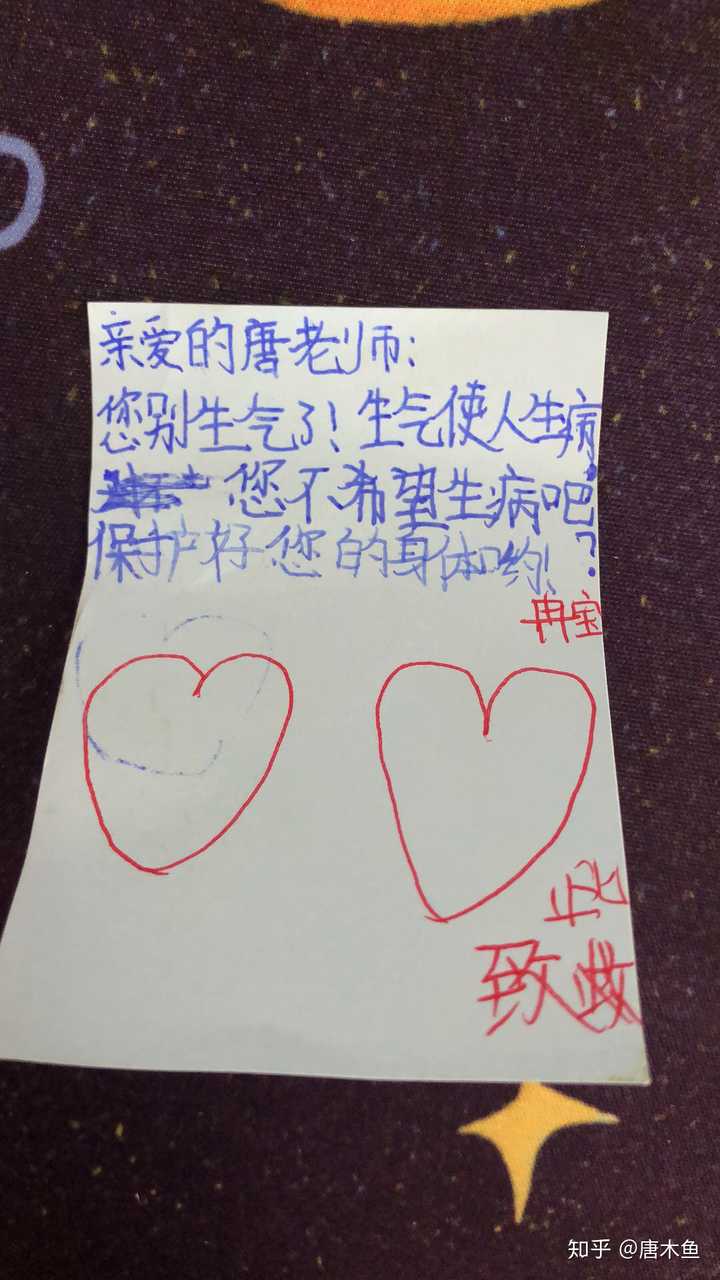 亲爱的唐老师:
您别生气了!生气使人生病,
您不希望生病吧?
保护好您的身体哟!
冉宝
致歉
知乎 @唐木鱼